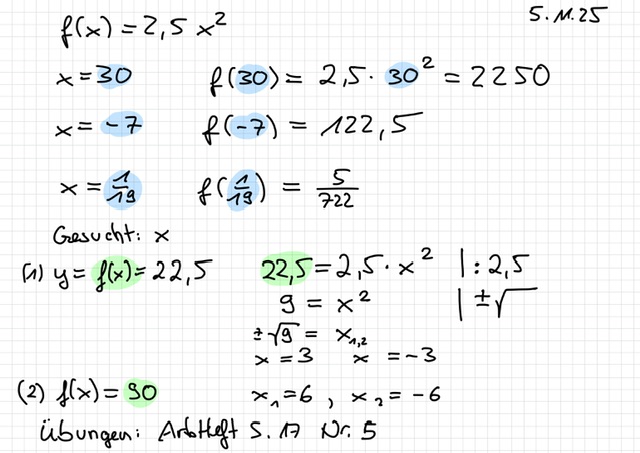 f(x) = 2,5 x² 5.11.25
x = 30 f(30) = 2,5 · 30² = 2250
x = -7 f(-7) = 122,5
x = 1/19 f(1/19) = 5/722
Gesucht: x
(1) y = f(x) = 22,5 22,5 = 2,5 · x² | : 2,5
9 = x² | ±√
±√9 = x₁,₂
x = 3 x = -3
(2) f(x) = 90 x₁ = 6 , x₂ = -6
Übungen: ArbHeft S. 17 Nr. 5